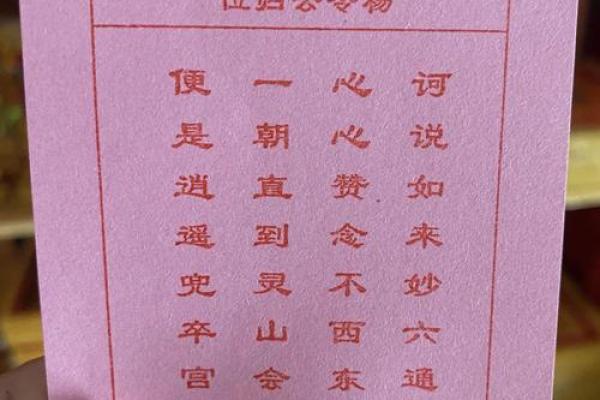 杨令公归位
诃说如来妙六通
心心赞念不西东
一朝直到灵山会
便是逍遥兜卒宫